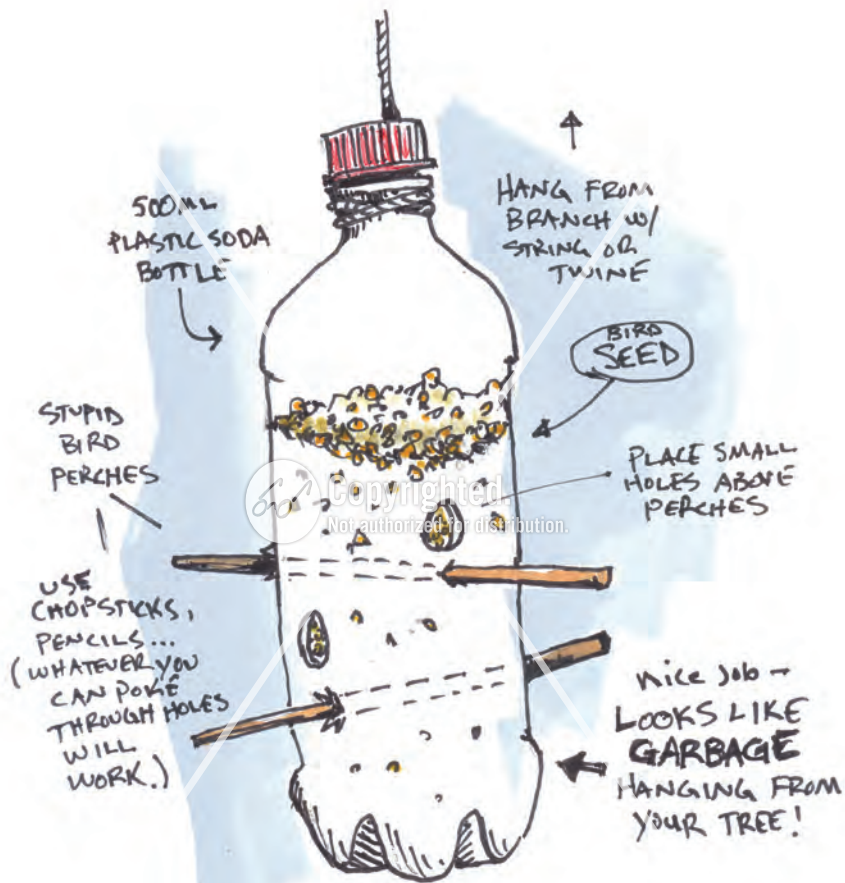 500ML
PLASTIC SODA
BOTTLE
HANG FROM
BRANCH W/
STRING OR
TWINE
BIRD
SEED
STUPID
BIRD
PERCHES
PLACE SMALL
HOLES ABOVE
PERCHES
Copyrighted.
Not authorized for distribution.
USE
CHOPSTICKS,
PENCILS...
(WHATEVER YOU
CAN POKE
THROUGH HOLES
WILL
WORK.)
nice job –
LOOKS LIKE
GARBAGE
HANGING FROM
YOUR TREE!